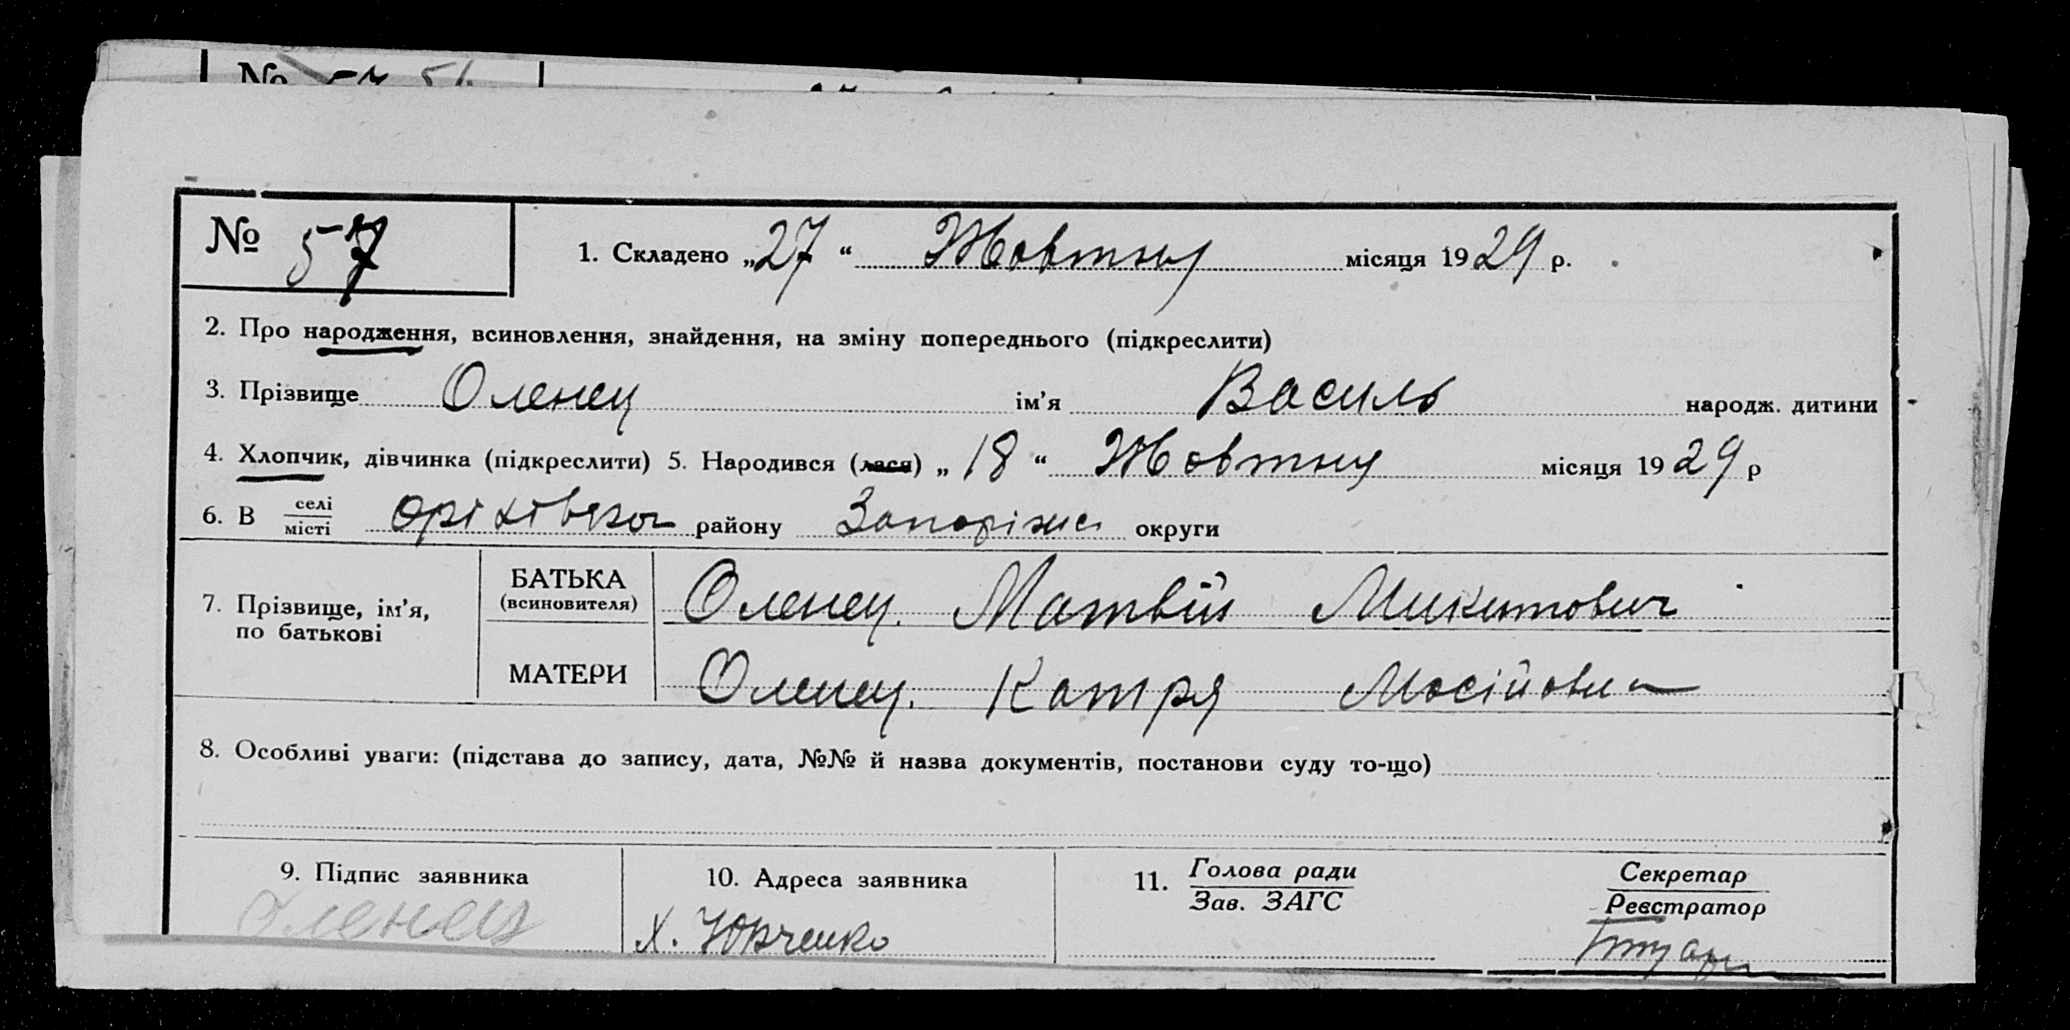 № 57 1. Складено „27“ Жовтня місяця 1929 р.
2. Про народження, всиновлення, знайдення, на зміну попереднього (підкреслити)
3. Прізвище Оленец ім’я Василь народж. дитини
4. Хлопчик, дівчинка (підкреслити) 5. Народився (лася) „18“ Жовтня місяця 1929 р
6. В селі
місті району Запоріжс округи
7. Прізвище, ім’я,
по батькові
БАТЬКА
(всиновителя) Оленец. Матвій Микитович
МАТЕРИ Оленец. Катря Мосійовн
8. Особливі уваги: (підстава до запису, дата, №№ й назва документів, постанови суду то-що)
9. Підпис заявника
Оленец
10. Адреса заявника
Х. Юрченко
11. Голова ради
Зав. ЗАГС
Секретар
Реєстратор